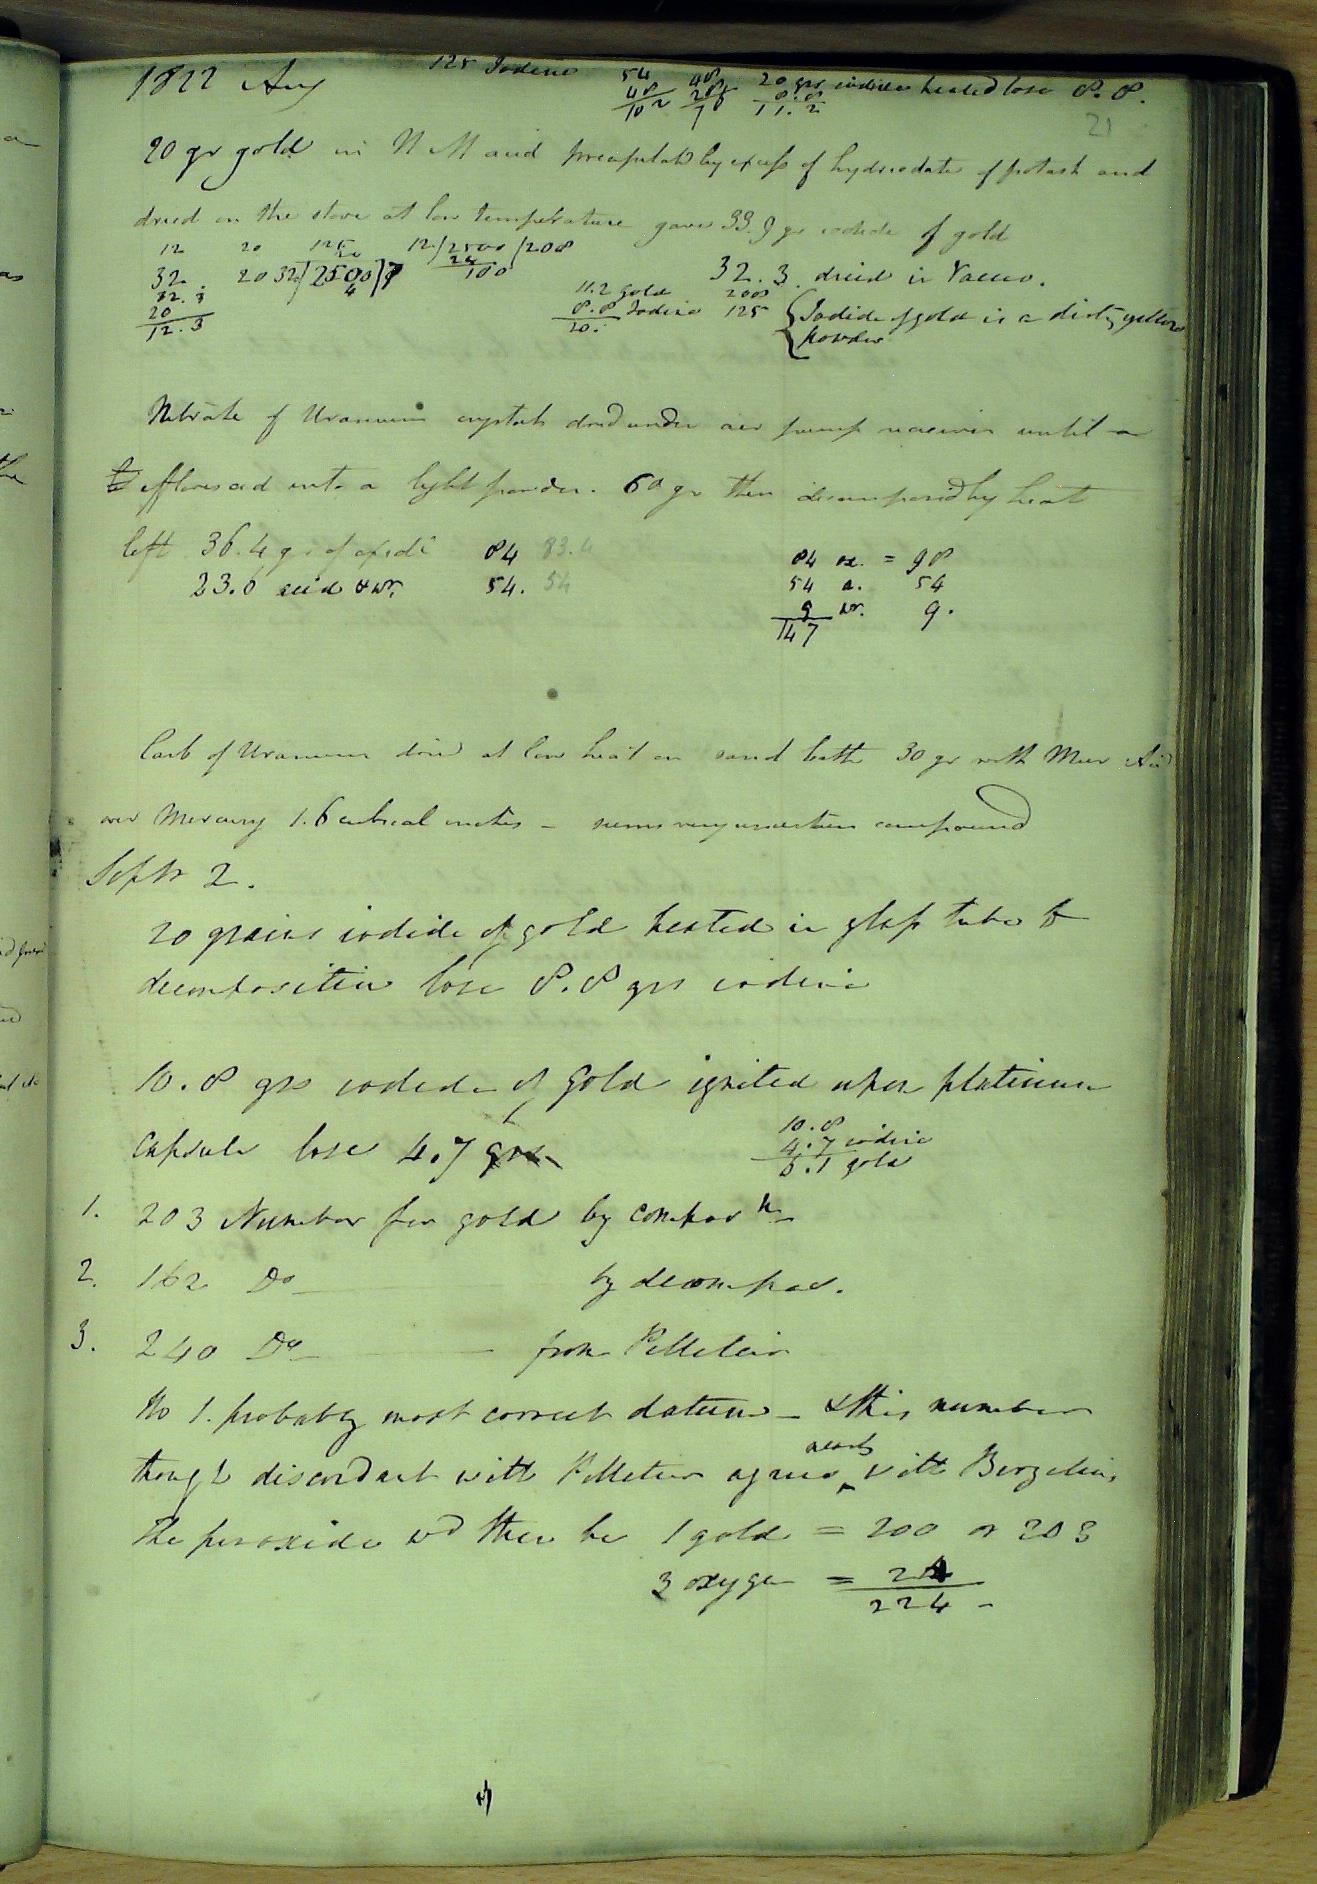 1822 Aug 125 Iodine 54 48 20 grs iodide heated lose 8.8.
48 28 8.8
102 11.2
21
20 gr gold in N M acid precipitated by excess of hydriodate of potash and
dried on the stove at low temperature gave 33.9 gr iodide of gold
12 20 125 12/2500/208
20 24
32. 20 32/2500/7 100 32.3. dried in Vacuo.
32.3 4 11.2 gold 208
20 8.8 Iodine 125 Iodide of gold is a dirty yellow
12.3 20. powder
Nitrate of Uranium crystals dried under air pump receiver until
effloresced into a light powder. 60 gr then decomposed by heat
left 36.4 gr of oxide 84 83.4 84 ox. = 98
23.6 acid & wr. 54. 54 54 a. 54
9 wr. 9.
147
Carb of Uranium dried at low heat on sand bath 30 gr with Mur Acid
over Mercury 1.6 cubical inches – seems very uncertain compound
Septr 2.
20 grains iodide of gold heated in glass tube to
decomposition lose 8.8 grs iodine
10.8 grs iodide of gold ignited upon platinum
capsule lose 4.7 grs 10.8
4.7 iodine
6.1 gold
1. 203 Number for gold by compos n
2. 162 Do by decompos.
3. 240 Do from Pelletier
No 1. probably most correct datum – & this number
nearly
though discordant with Pelletier agrees ‸ with Berzelius
The peroxide wd then be 1 gold = 200 or 203
3 oxygen = 24
224 –